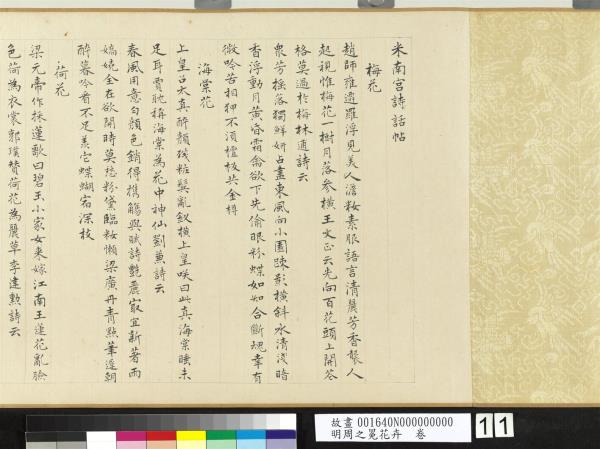 米南宮詩話帖
梅花
趙師雄過羅浮見美人澹粧素服語言清麗芳香襲人
起視惟梅花一樹月落參橫王文正云先向百花頭上開若
格莫過於梅林逋詩云
衆芳搖落獨鮮妍占盡東風向小園疎影橫斜水清淺暗
香浮動月黃昏霜禽欲下先偷眼粉蝶如知合斷魂幸有
微吟苦相狎不須檀板共金樽
海棠花
上皇召太真醉顏殘粧鬢亂釵橫上皇咲曰此真海棠睡未
足耳賈耽稱海棠為花中神仙劉兼詩云
春風用意勻顏色銷得携觴與賦詩艷麗最宜新著雨
嬌嬈全在欲開時莫愁粉黛臨粧懶梁廣丹青點筆遲朝
醉暮吟看不足羨它蝴蝶宿深枝
荷花
梁元帝作採蓮歌曰碧玉小家女來嫁江南王蓮花亂臉
色荷為衣裳郭璞贊荷花為麗草李建勳詩云
故畫 001640N000000000
明周之冕花卉 卷
11